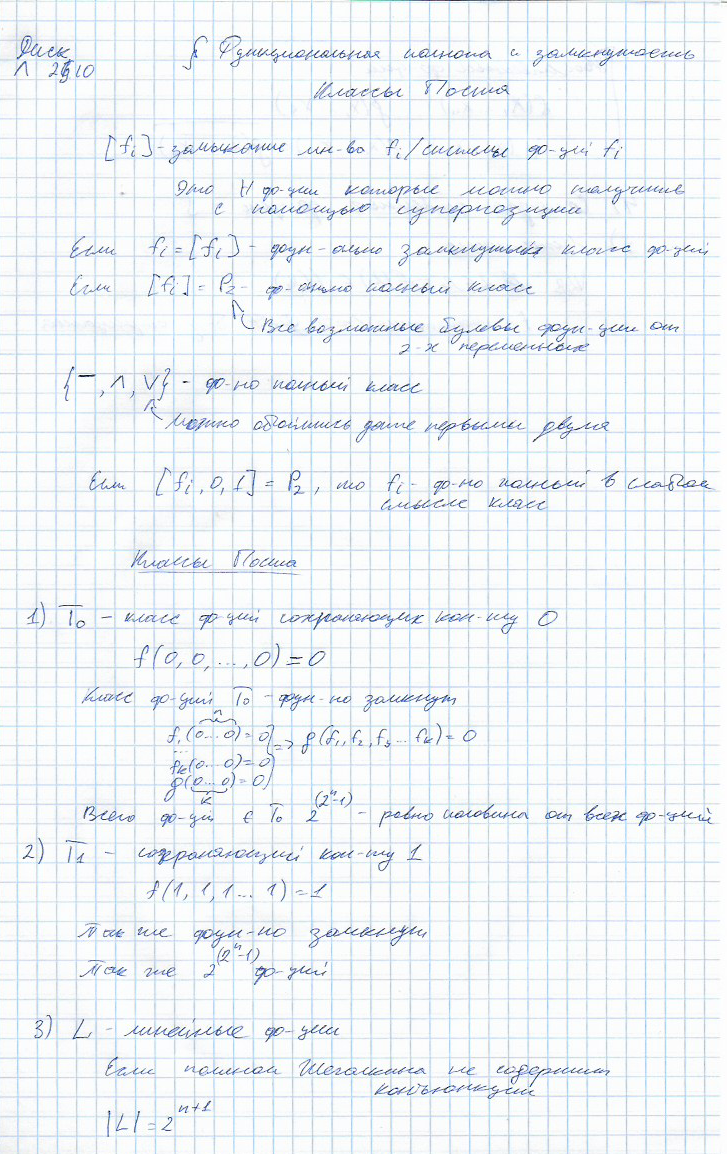 Диск
Л 26 10
§ Функциональная полнота и замкнутость
Классы Поста
[fi] - замыкание мн-ва fi /системы фу-ций fi
Это ∀ фу-ции которые можно получить
с помощью суперпозиции
Если fi = [fi] - фун-ально замкнутый класс фу-ций
Если [fi] = P2 - фу-ально полный класс
Все возможные булевы фун-ции от
2-х переменных
{ ‾, ∧, ∨} - фу-но полный класс
Можно обойтись даже первыми двумя
Если [fi, 0, 1] = P2, то fi - фу-но полный в слабом
смысле класс
Классы Поста
1) T0 - класс фу-ций сохраняющих кон-ту 0
f(0, 0, ..., 0) = 0
Класс фу-ций T0 - фун-но замкнут
n
f1(0...0) = 0 } => g(f1, f2, f3 ... fk) = 0
...
fk(0...0) = 0
g(0...0) = 0
k
Всего фу-ций ∈ T0 2^(2^n-1) - ровно половина от всех фу-ций
2) T1 - сохраняющий кон-ту 1
f(1, 1, 1 ... 1) = 1
Так же фун-но замкнут
Так же 2^(2^n-1) фу-ций
3) L - линейные фу-ции
Если полином Жегалкина не содержит
конъюнкций
|L| = 2^n+1